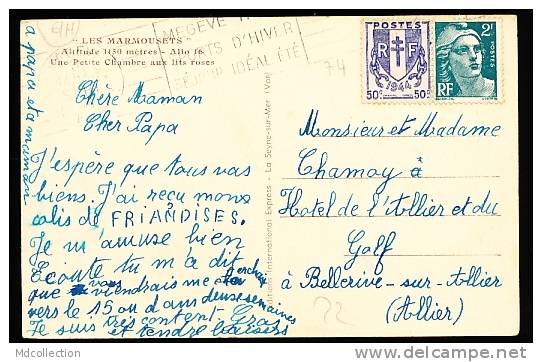 LES MARMOUSETS
Altitude 1150 mètres - Allo 18
Une Petite Chambre aux lits roses
MEGEVE
SPORTS D'HIVER
SÉJOUR IDÉAL ÉTÉ
74
POSTES
RF
1944
50c 50c
2F
POSTES
RF
a papa et a maman
Chère Maman
Cher Papa
J'espère que tous vas
biens. J'ai reçu mons
colis de FRIANDISES.
Je m'amuse bien
Ecoute tu m'a dit
que vous viendrais me cherchais
vers le 15 ou dans deuse semaines
Je suis très content. Gras
et tendre baisers
Editions International Express - La Seyne-sur-Mer (Var)
Monsieur et Madame
Chamoy à
Hotel de l'Allier et du
Golf
à Bellerive-sur-Allier
(Allier)
22
Mdcollection
www.delcampe.net